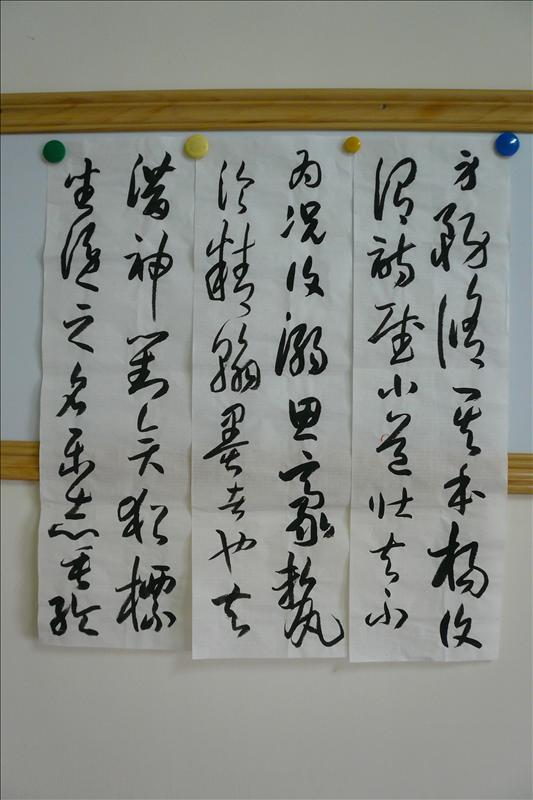 身務脩其本楊雄
謂詩賦小道壯夫不
為況復溺思豪氂
淪精翰墨者也夫
潛神對奕猶標
坐隱之名樂志垂綸